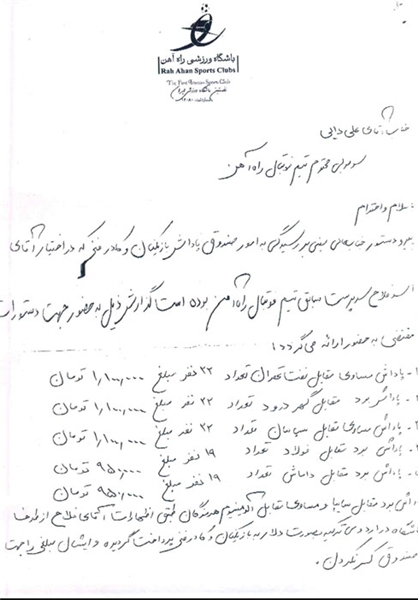 باشگاه ورزشی راه آهن
Rah Ahan Sports Clubs
The First Iranian Sports Club
نخستین باشگاه ورزشی ایران
جناب آقای علی دایی
سرمربی محترم تیم فوتبال راه آهن
سلام و احترام
دستور جنابعالی مبنی بر رسیدگی به امور صندوق پاداش بازیکنان و کادر فنی که در اختیار آقای
اسد فلاح سرپرست سابق تیم فوتبال راه آهن بوده است گزارش ذیل به حضور جهت دستورات
مقتضی به حضور ارائه می گردد:
پاداش مساوی مقابل نفت تهران تعداد ۲۲ نفر مبلغ ۱,۱۰۰,۰۰۰ تومان
پاداش برد مقابل گهر درود تعداد ۲۲ نفر مبلغ ۱,۱۰۰,۰۰۰ تومان
پاداش مساوی مقابل سپاهان تعداد ۲۲ نفر مبلغ ۱,۱۰۰,۰۰۰ تومان
پاداش برد مقابل فولاد تعداد ۱۹ نفر مبلغ ۹۵۰,۰۰۰ تومان
پاداش برد مقابل داماش تعداد ۱۹ نفر مبلغ ۹۵۰,۰۰۰ تومان
پاداش برد مقابل سایپا و مساوی مقابل آلومینیوم هرمزگان طبق اظهارات آقای فلاح از طرف
باشگاه در اردوی ترکیه بصورت دلار به بازیکنان و کادر فنی پرداخت گردیده و ایشان مبلغی را جهت
صندوق کسر نکردن.